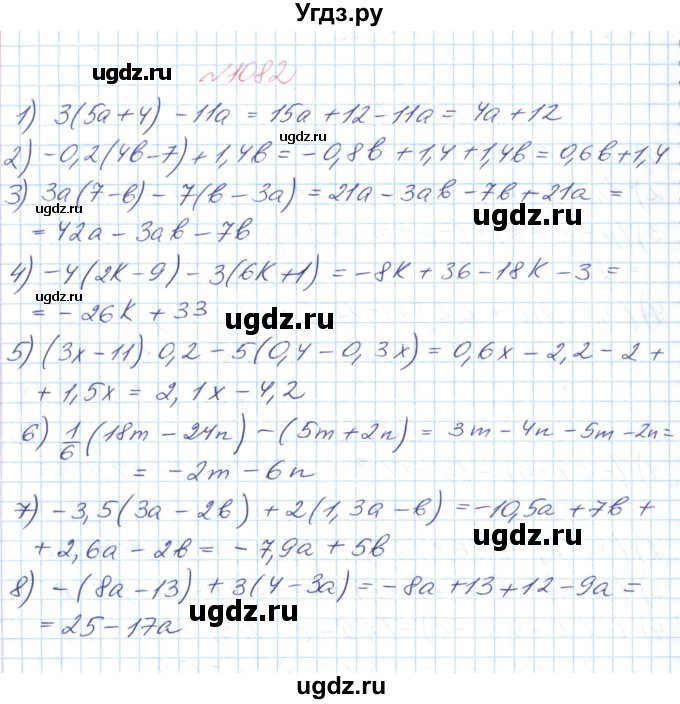 Угдз.ру
ugdz.ru
№1082
1) 3(5a+4) - 11a = 15a+12-11a = 4a+12
ugdz.ru
2) -0,2(4b-7)+1,4b = -0,8b + 1,4 + 1,4b = 0,6b+1,4
3) 3a(7-b) - 7(b-3a) = 21a-3ab-7b+21a =
ugdz.ru
ugdz.ru
= 42a-3ab-7b
4) -4(2k-9) - 3(6k+1) = -8k+36-18k-3 =
ugdz.ru
= -26k + 33
ugdz.ru
5) (3x-11) 0,2 - 5(0,4-0,3x) = 0,6x - 2,2 - 2 +
+ 1,5x = 2,1x - 4,2
6) 1/6 (18m - 24n) - (5m+2n) = 3m - 4n - 5m - 2n =
= -2m - 6n
7) -3,5(3a-2b) + 2(1,3a-b) = -10,5a + 7b +
ugdz.ru
+ 2,6a - 2b = -7,9a + 5b
8) -(8a-13) + 3(4-3a) = -8a+13+12-9a =
ugdz.ru
= 25-17a
ugdz.ru